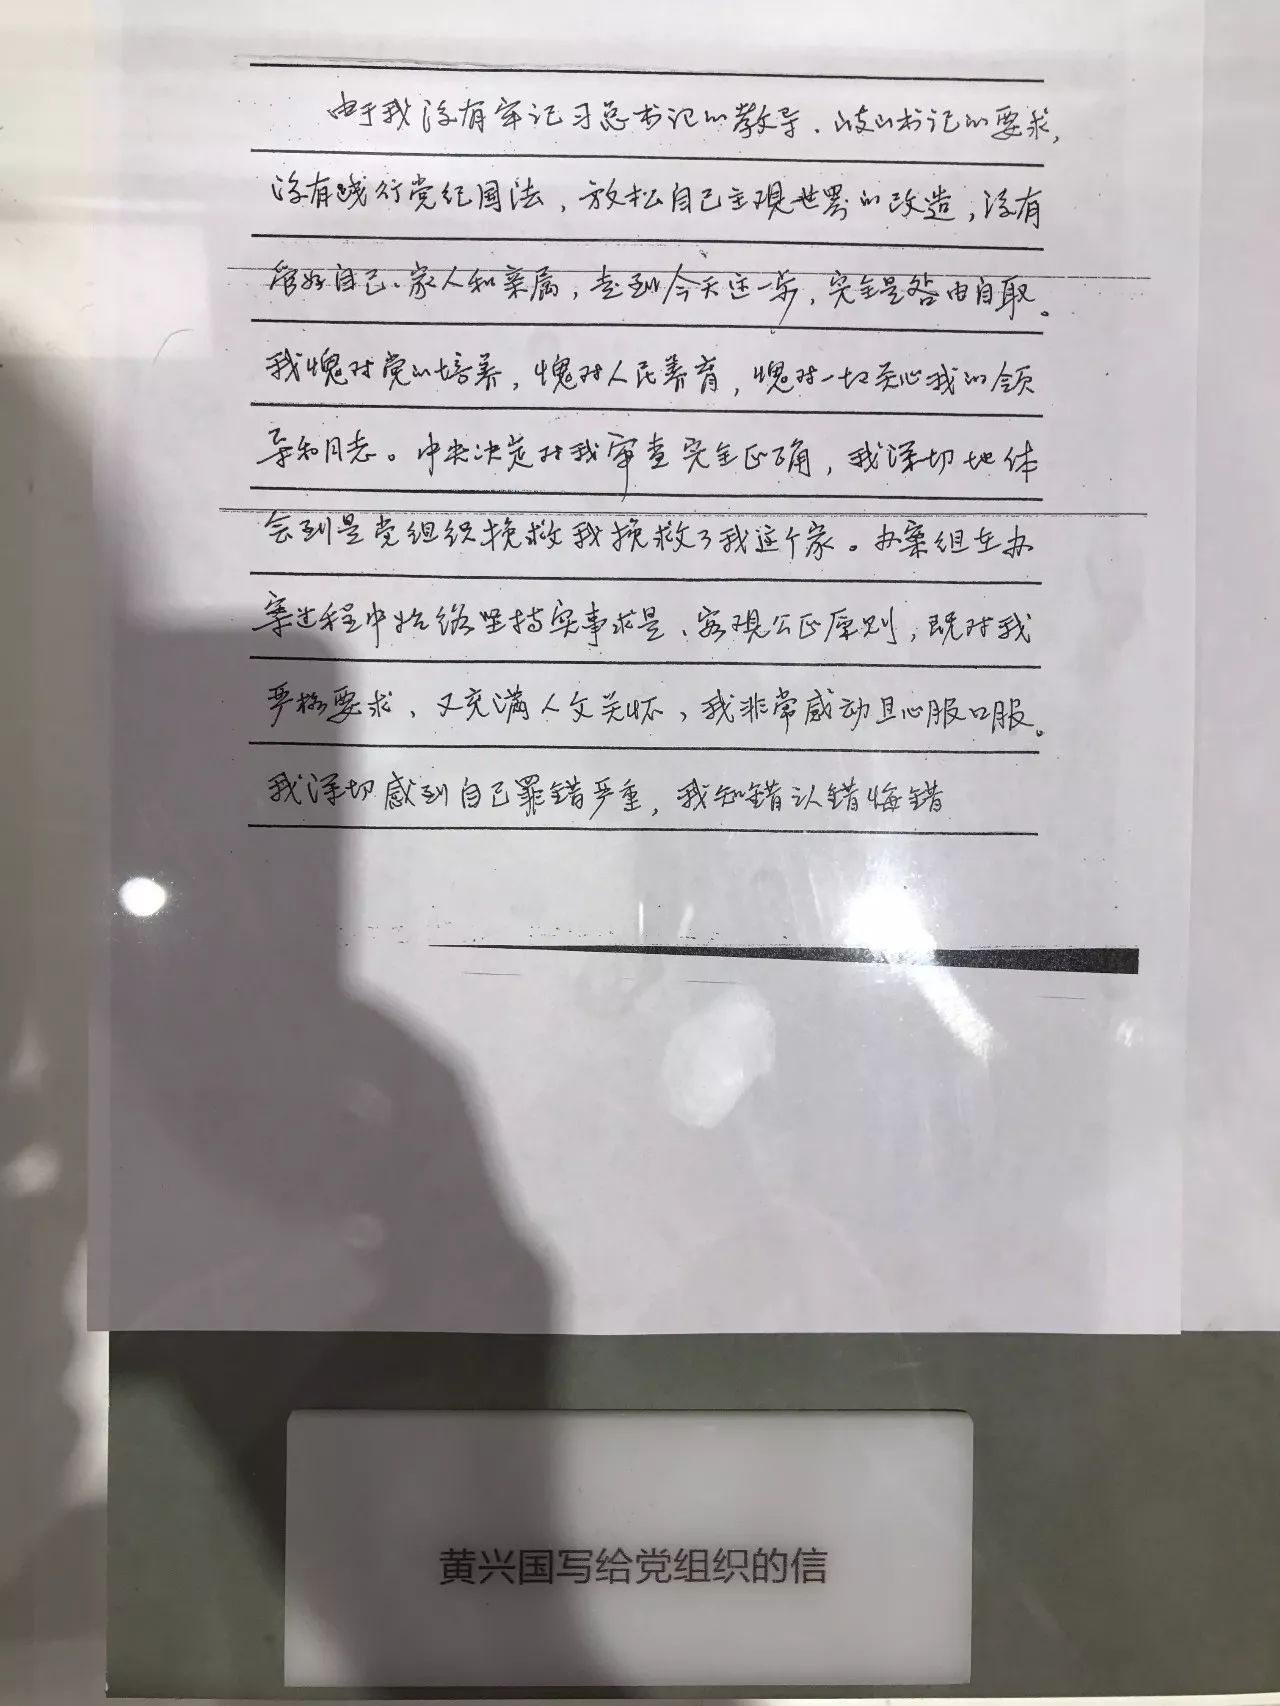 由于我没有牢记习总书记的教导、岐山书记的要求，
没有践行党纪国法，放松自己主观世界的改造，没有
管好自己、家人和亲属，走到今天这一步，完全是咎由自取。
我愧对党的培养，愧对人民养育，愧对一切关心我的领
导和同志。中央决定对我审查完全正确，我深切地体
会到是党组织挽救我挽救了我这个家。办案组在办
案过程中始终坚持实事求是、客观公正原则，既对我
严格要求，又充满人文关怀，我非常感动且心服口服。
我深切感到自己罪错严重，我知错认错悔错
黄兴国写给党组织的信